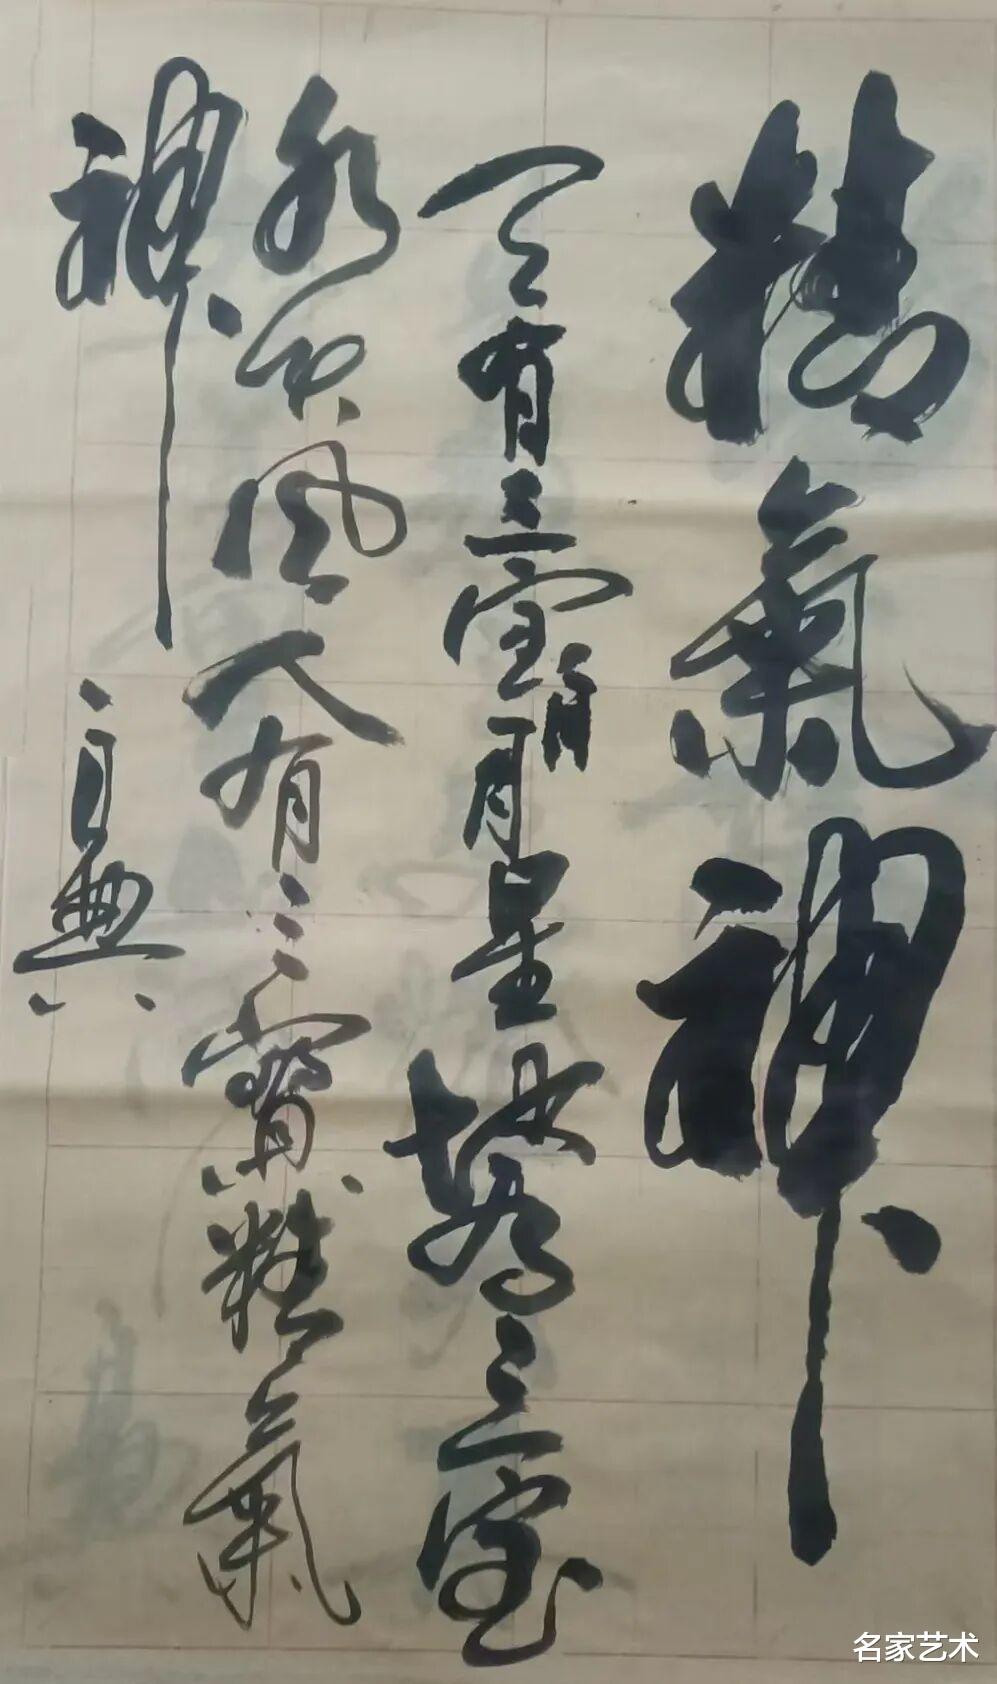 精氣神
天有三宝日月星地三宝
水火风人有三寶精氣
神
名家艺术